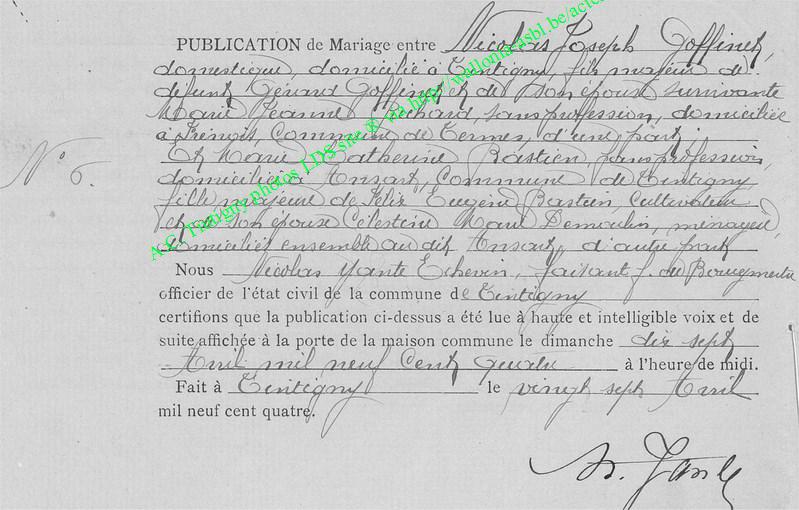 PUBLICATION de Mariage entre Nicolas Joseph Goffinet,
domestique, domicilié à Tintigny, fils majeur de
defunt Gérard Goffinet et de son épouse survivante
Marie Jeanne sans profession, domiciliée
à Frenois, Commune de Termes, d'une part
Et Marie Catherine Bastien, sans profession,
domiciliée à Ansart, Commune de Tintigny,
fille majeure de Félix Eugène Bastien, Cultivateur
et de son épouse Célestine Marie Demoulin, ménagère,
domiciliés ensemble au dit Ansart, d'autre part
N° 6.
Nous Nicolas Yante Echevin, faisant f. de Bourgmestre
officier de l'état civil de la commune de Tintigny
certifions que la publication ci-dessus a été lue à haute et intelligible voix et de
suite affichée à la porte de la maison commune le dimanche dix sept
Avril mil neuf Cent quatre à l'heure de midi.
Fait à Tintigny le vingt sept Avril
mil neuf cent quatre.
N. Yante
A.C. Tintigny photos LDS site ® via http://wallonia-asbl.be/acic